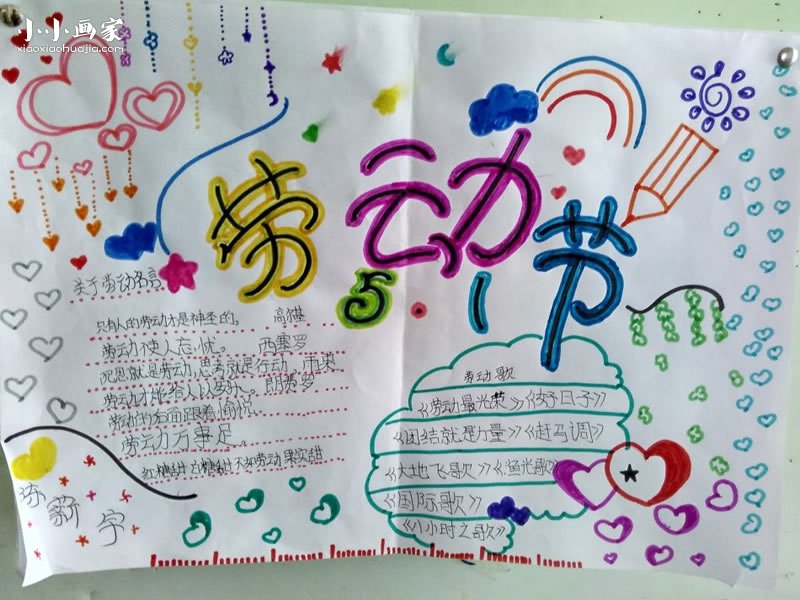 小小画家
xiaoxiaohuajia.com
劳动节
5.1
关于劳动名言
只有人的劳动才是神圣的。 高尔基
劳动使人忘忧。 西塞罗
沉思就是劳动,思考就是行动。雨果
劳动才能给人以安乐。朗费罗
劳动的后面跟着愉悦
劳动力万事足。
红糖甜 白糖甜 不如劳动果实甜
劳动歌
《劳动最光荣》《好日子》
《团结就是力量》《赶马调》
《大地飞歌》《渔光歌》
《国际歌》
《八小时之歌》
陈薪宇